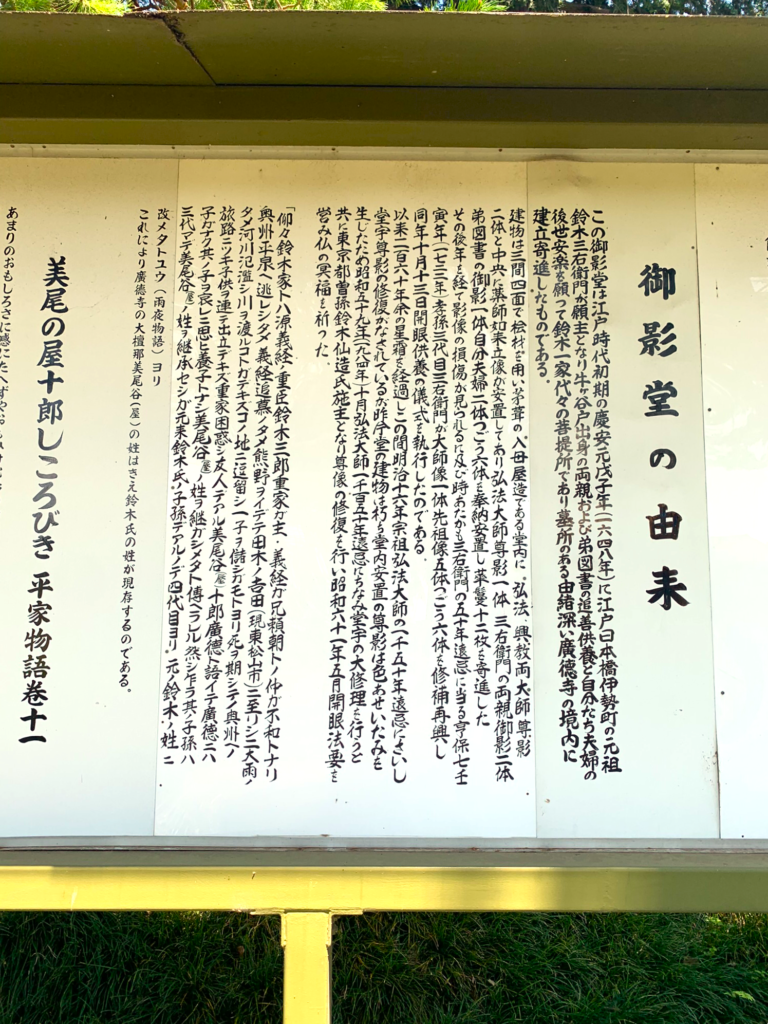 御影堂の由来
この御影堂は江戸時代初期の慶安元戊子年(一六四八年)に江戸日本橋伊勢町の元祖
鈴木三右衛門が願主となり牛ヶ谷戸出身の両親および弟図書の追善供養と自分たち夫婦の
後世安楽を願って鈴木一家代々の菩提所であり墓所のある由緒深い廣德寺の境内に
建立寄進したものである。
建物は三間四面で桧材を用い茅葺の入母屋造である堂内に、弘法、興教両大師尊影
二体と中央に薬師如来立像が安置してあり弘法大師尊影一体 三右衛門の両親御影二体
弟図書の御影一体自分夫婦二体つごう六体を奉納安置し華鬘十二枚を寄進した
その後年を経て影像の損傷が見つれるに及び時あたかも三右衛門の五十年遠忌に当る享保七壬
寅年(一七二二年)孝孫三代目三右衛門が大師像一体先祖像五体つごう六体を修補再興し
同年十月十三日開眼供養の儀式を執行したのである
以来二百六十年余の星霜を経過しこの間明治十六年宗祖弘法大師の一千五十年遠忌にさいし
堂宇尊影の修復がなされているが昨今堂の建物は朽ち堂内安置の尊影は色あせいたみを
生じたため昭和五十九年(一九八四年)十月弘法大師一千百五十年遠忌にちなみ堂宇の大修理を行うと
共に東京都曽孫鈴木仙造氏施主となり尊像の修復を行い昭和六十一年五月開眼法要を
営み仏の冥福を祈った
「仰々鈴木家トハ源義経ノ重臣鈴木三郎重家ガ主・義経ガ兄頼朝トノ仲ガ不和トナリ
奥州平泉ヘ逃レシタメ義経追慕ノタメ熊野ヲイデテ田木ノ吉田(現東松山市)ニ至リシニ大雨ノ
タメ河川氾濫シ川ヲ渡ルコトガデキズコノ地ニ逗留シ一子ヲ儲シガモトヨリ死ヲ期シテノ奥州ヘノ
旅路ニツキ子供ヲ連テ出立デキズ重家困惑シ友人デアル美尾谷(屋)十郎廣徳ト語イテ廣徳ニハ
子ガナク其ノ子ヲ哀レニ思ヒ養子トナシ美尾谷(屋)ノ姓ヲ継ガシメタト傳ヘラル然シ乍ラ其ノ子孫ハ
三代マデ美尾谷(屋)ノ姓ヲ継承セシガ元来鈴木氏ノ子孫デアルノデ四代目ヨリ元ノ鈴木ノ姓ニ
改メタトユウ(雨夜物語)ヨリ
これにより廣德寺の大檀那美尾谷(屋)の姓はきえ鈴木氏の姓が現存するのである。
美尾の屋十郎しころびき 平家物語巻十一
あまりのおもしろさに感にたへずやおもひけむ